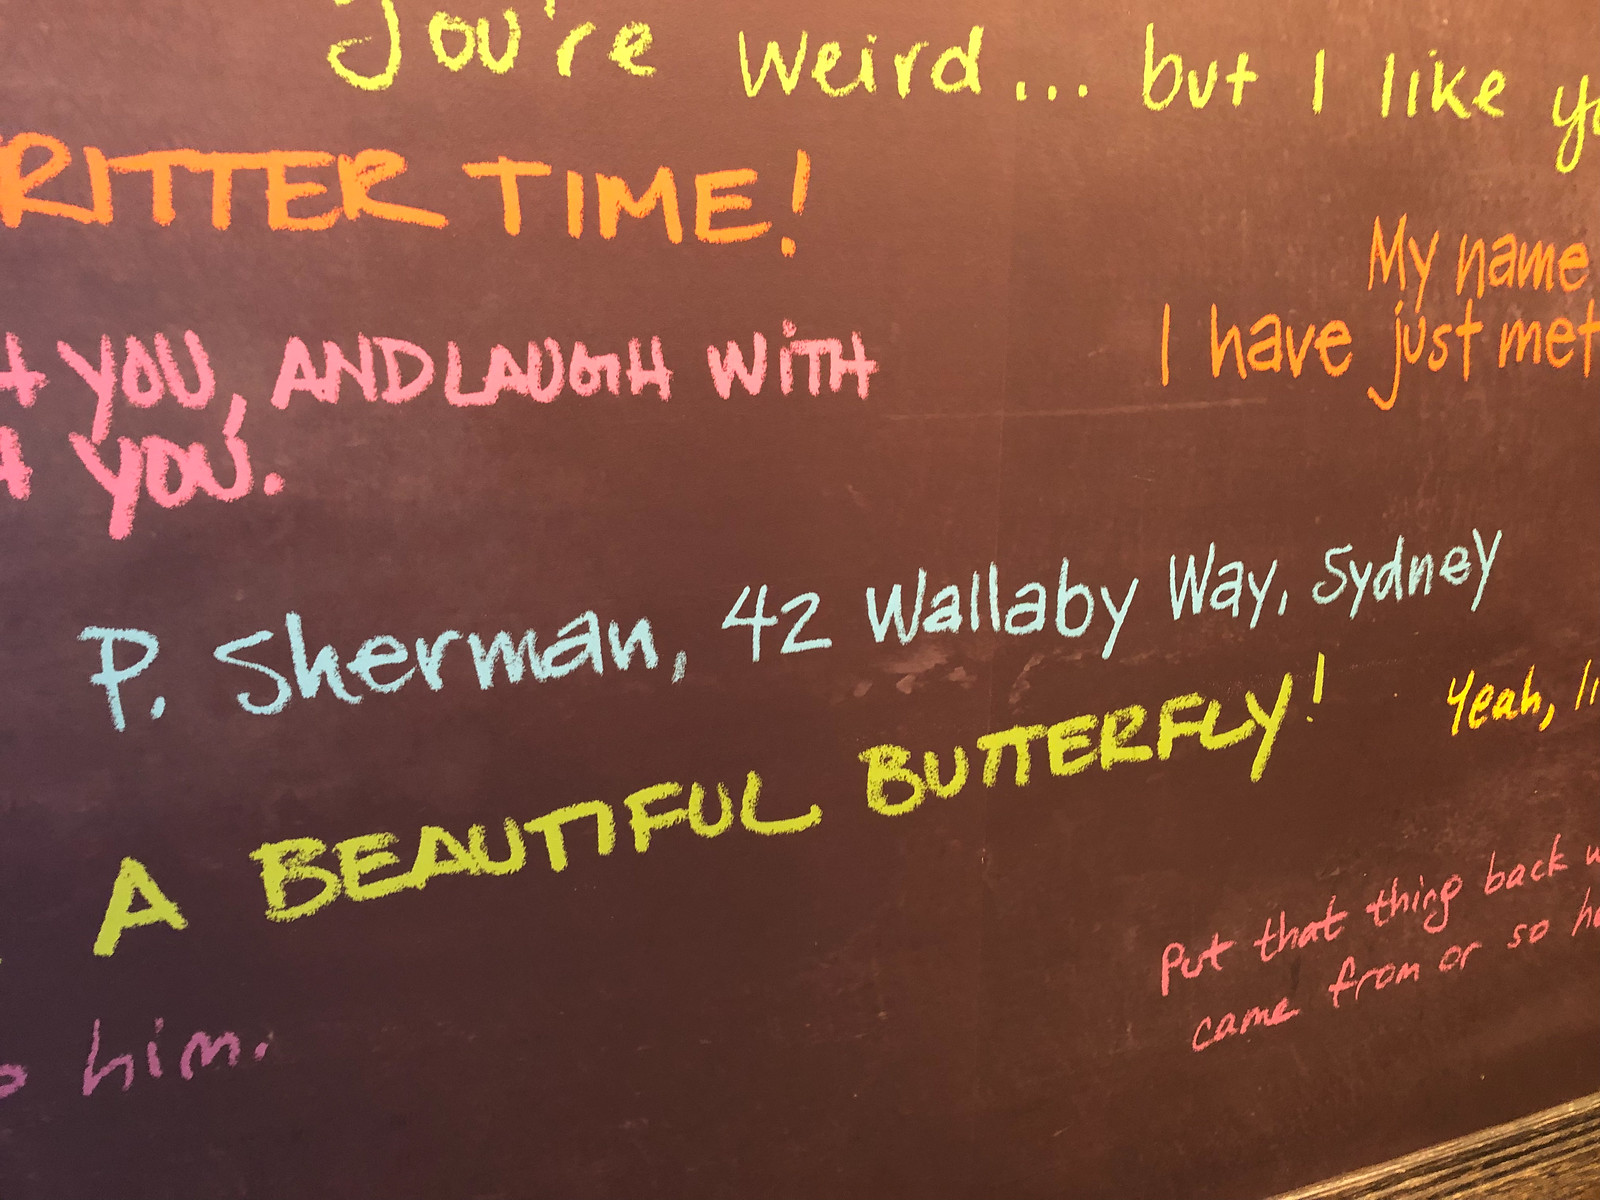 You're weird... but I like yo
RITTER TIME!
My name
I have just met
YOU, AND LAUGH WITH
YOU.
P. Sherman, 42 Wallaby Way, Sydney
A BEAUTIFUL BUTTERFLY!
Yeah, li
Put that thing back w
came from or so he
him.